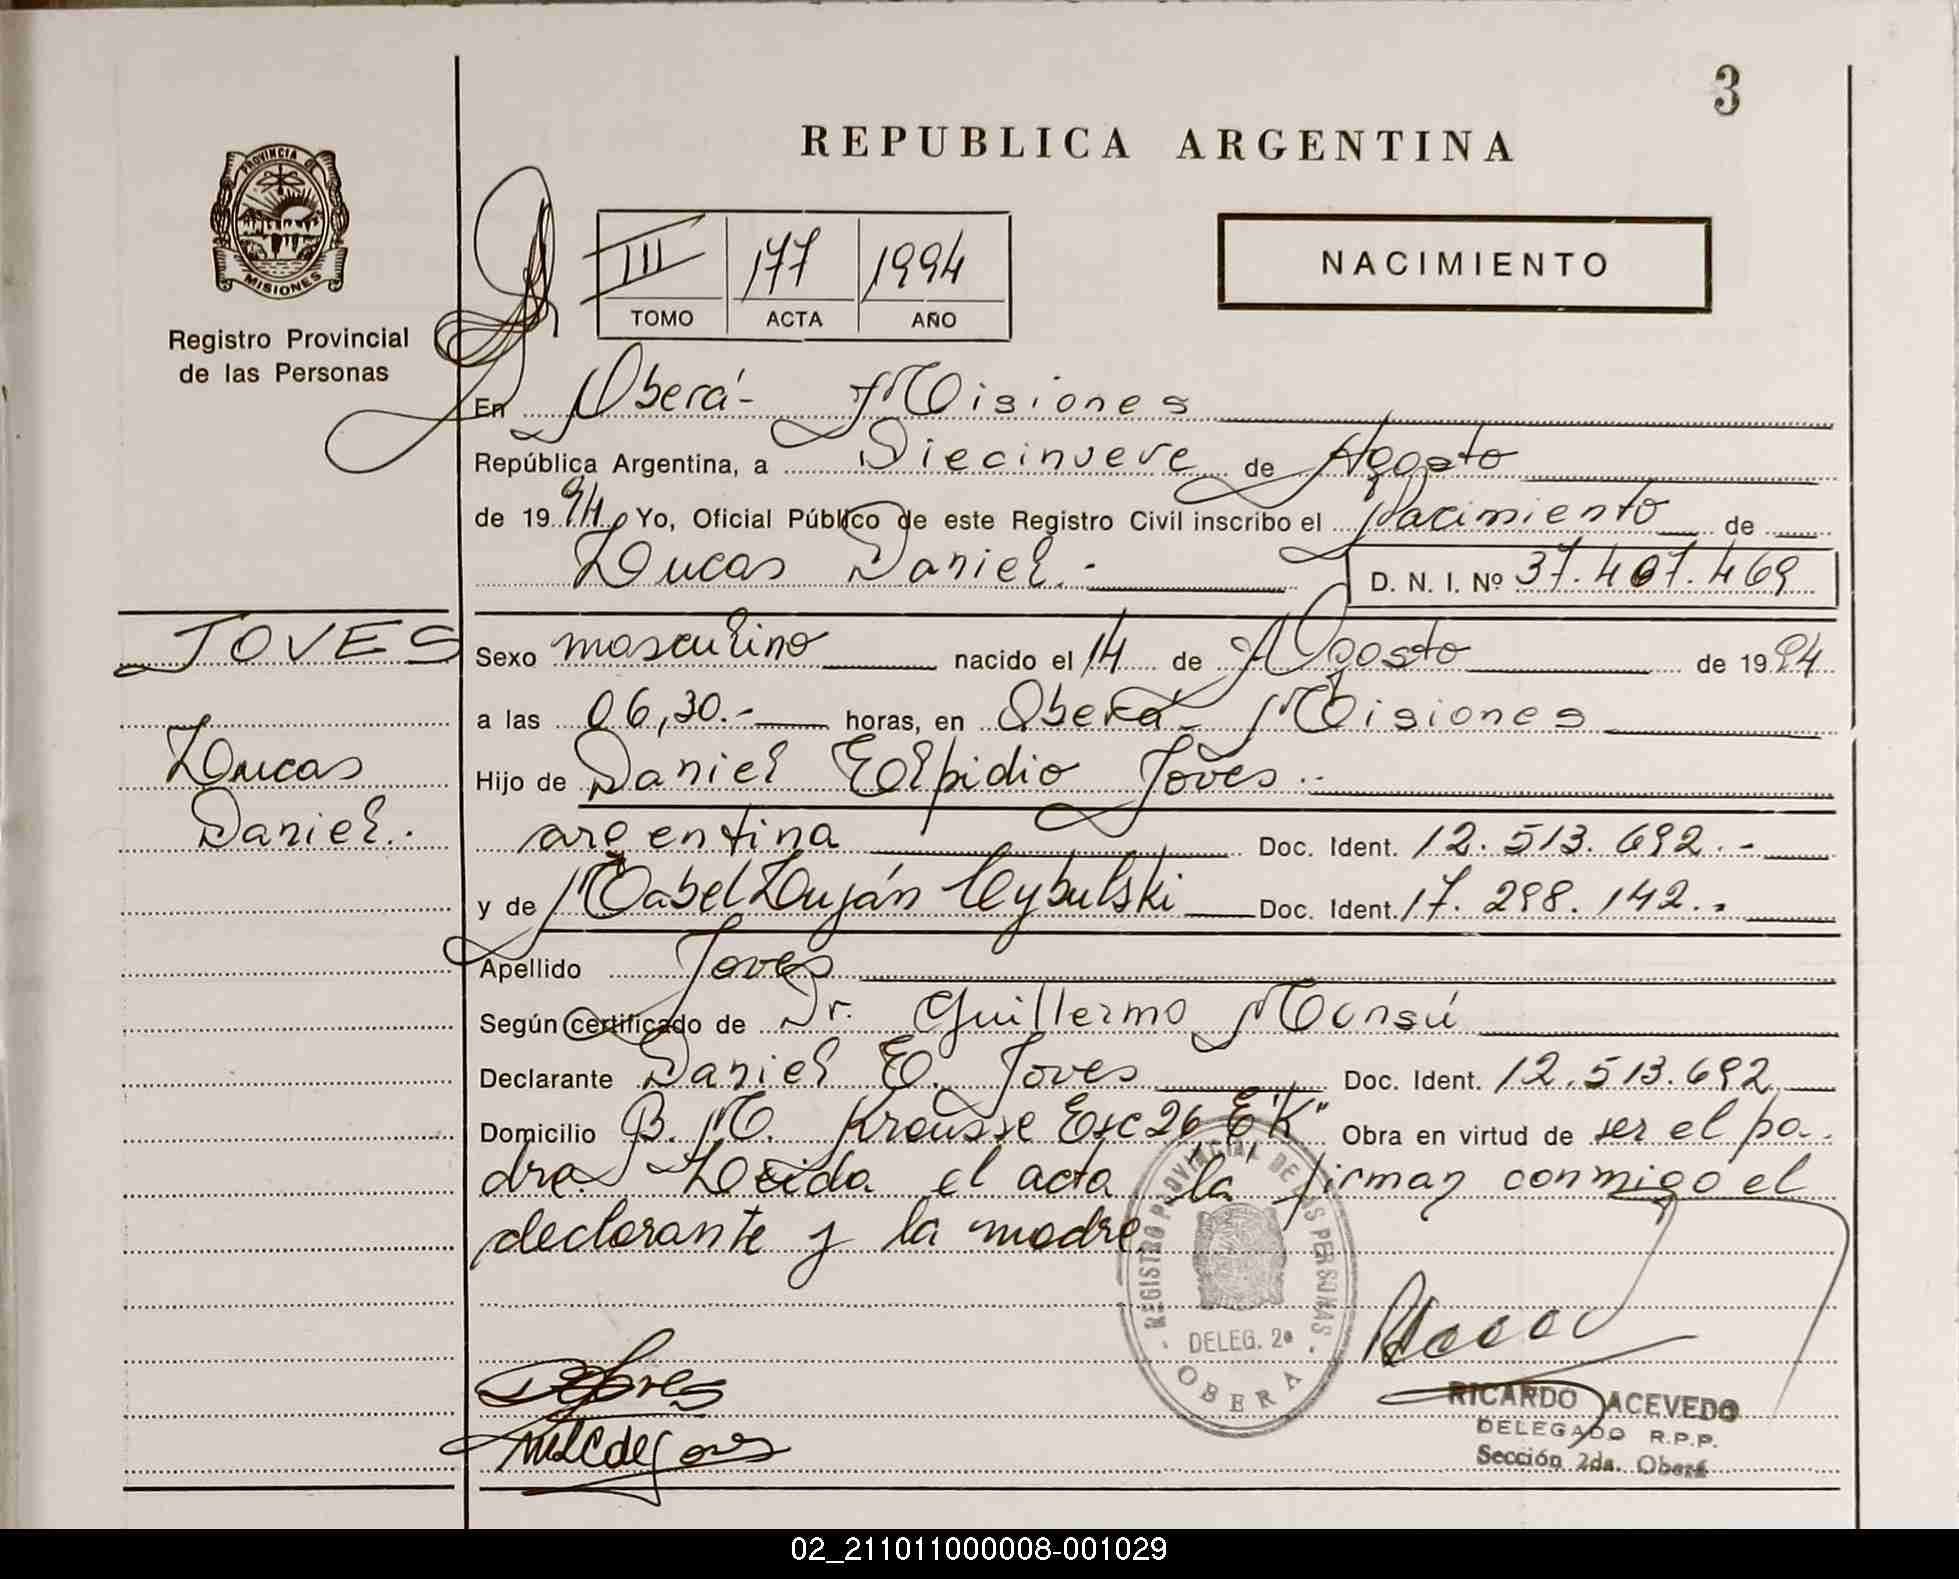 3
REPUBLICA ARGENTINA
PROVINCIA DE
MISIONES
Registro Provincial
de las Personas
III 177 1994
TOMO ACTA AÑO
NACIMIENTO
En Oberá- Misiones
República Argentina, a Diecinueve de Agosto
de 1994 Yo, Oficial Público de este Registro Civil inscribo el Nacimiento de
Lucas Daniel.-
D. N. I. Nº 37.407.469
JOVES
Lucas
Daniel.
Sexo masculino nacido el 14 de Agosto de 1994
a las 06,30.- horas, en Oberá- Misiones
Hijo de Daniel Elpidio Joves.-
argentina Doc. Ident. 12.513.692.-
y de Mabel Luján Cybulski Doc. Ident. 17.298.142.-
Apellido Joves
Según certificado de Dr. Guillermo Monsú
Declarante Daniel E. Joves Doc. Ident. 12.513.692
Domicilio B. M. Krausse Esc 26 E "K" Obra en virtud de ser el pa-
dre. Leida el acta la firman conmigo el
declarante y la madre
REGISTRO PROVINCIAL DE LAS PERSONAS
DELEG. 2ª
OBERA
RICARDO ACEVEDO
DELEGADO R.P.P.
Sección 2da. Oberá
02_211011000008-001029